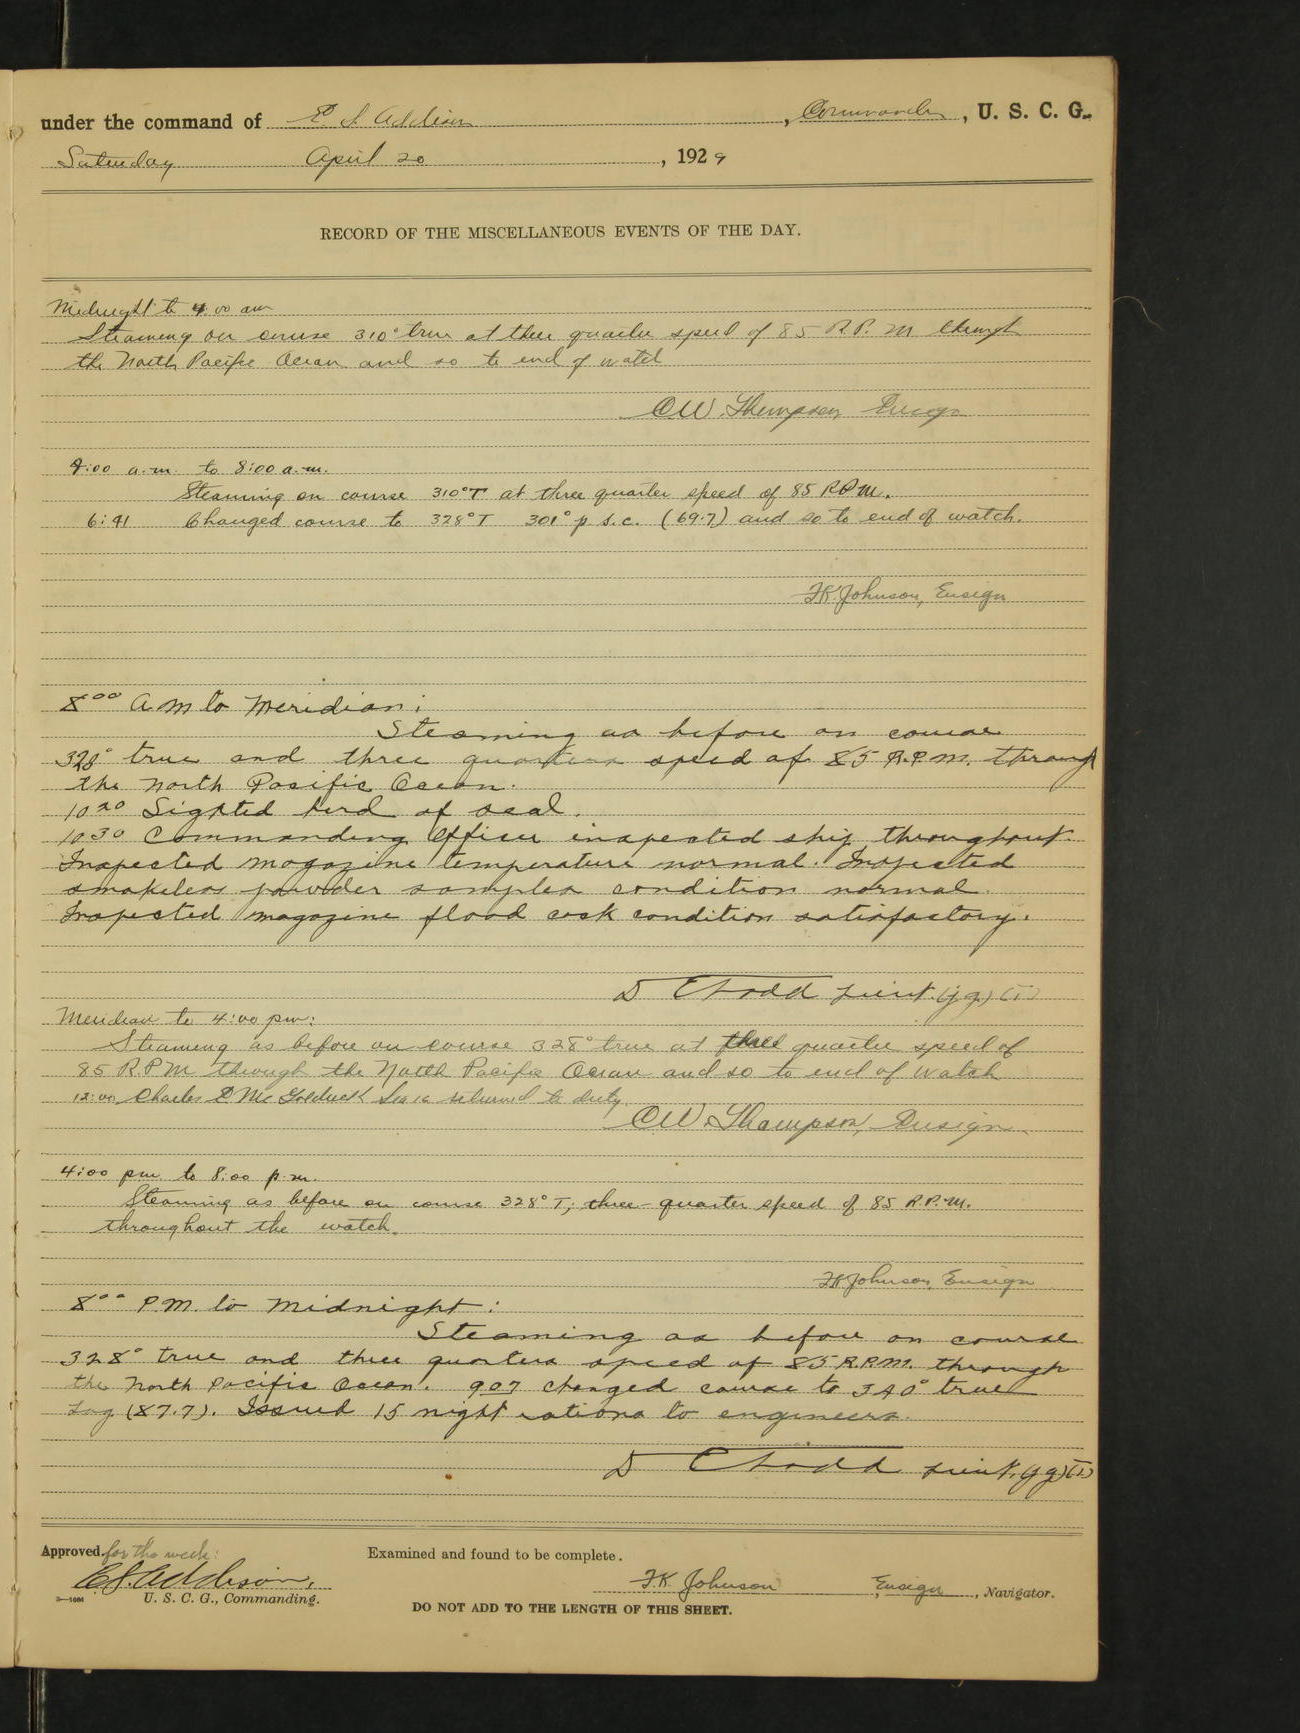 under the command of E. S. Addison, Commander, U. S. C. G.
Saturday April 20, 1929
RECORD OF THE MISCELLANEOUS EVENTS OF THE DAY.
Midnight to 4:00 am
Steaming on course 310° true at three quarter speed of 85 R.P.M through
the North Pacific Ocean and so to end of watch
C.W. Thompson, Ensign
4:00 a.m. to 8:00 a.m.
Steaming on course 310°T at three quarter speed of 85 RPM.
6:41 Changed course to 328°T 301° p.s.c. (69.7) and so to end of watch.
F.K. Johnson, Ensign
8:00 A M to Meridian:
Steaming as before on course
328° true and three quarters speed of 85 R.P.M. through
the North Pacific Ocean.
1020 Sighted herd of seal.
1030 Commanding Officer inspected ship throughout.
Inspected magazine temperature normal. Inspected
smokeless powder samples condition normal.
Inspected magazine flood cock condition satisfactory.
D C Todd Lieut. (jg) (T)
Meridian to 4:00 pm:
Steaming as before on course 328° true at three quarter speed of
85 RPM through the North Pacific Ocean and so to end of watch
12:00 Charles Mc Sea 1c returned to duty.
C.W. Thompson, Ensign
4:00 pm to 8:00 p.m.
Steaming as before on course 328° T, three-quarter speed of 85 R.P.M.
throughout the watch.
F.K. Johnson, Ensign
8:00 P.M. to Midnight:
Steaming as before on course
328° true and three quarters speed of 85 R.P.M. through
the North Pacific Ocean. 907 changed course to 340° true
Log (87.7). Issued 15 night rations to engineers.
D C Todd Lieut. (jg)(T)
Approved for the week:
Examined and found to be complete.
E.S. Addison,
F.K. Johnson, Ensign, Navigator.
U. S. C. G., Commanding.
DO NOT ADD TO THE LENGTH OF THIS SHEET.